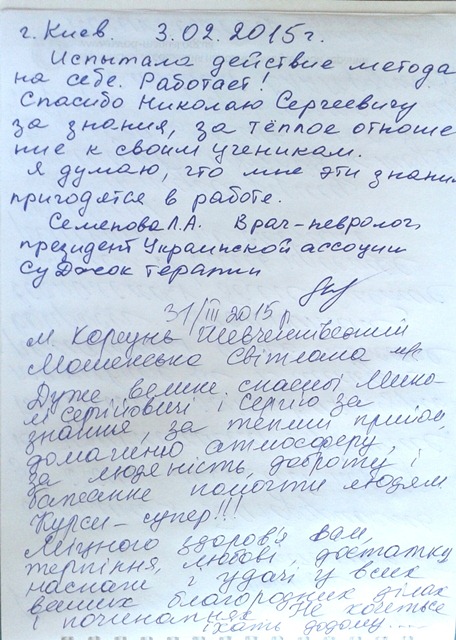 г. Киев. 3.02.2015г.
Испытала действие метода
на себе. Работает!
Спасибо Николаю Сергеевичу
за знания, за тёплое отноше-
ние к своим ученикам.
Я думаю, что мне эти знания
пригодятся в работе.
Семенова Л.А. Врач-невролог,
президент Украинской ассоции
Су Джок терапии
31/III 2015 р
м. Корсунь Шевченківський
Мошенська Світлана
Дуже велике спасибі Мико-
лі Сергійовичі і Сергію за
знання, за теплий прийом,
домашню атмосферу,
за людяність, доброту і
бажання помогти людям
Курси - супер!!!
Міцного здоров'я Вам,
терпіння, любові, достатку
наснаги і удачі у всих
ваших благородних ділах
і починаннях Не хочеться
їхать додому....